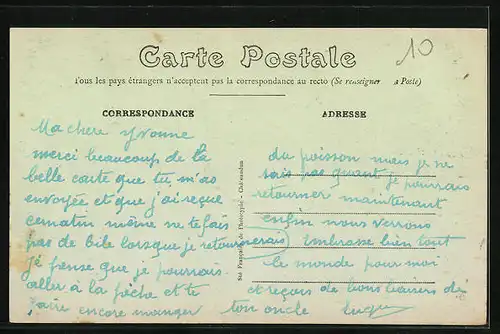 10
Carte Postale
Tous les pays étrangers n'acceptent pas la correspondance au recto (Se renseigner à Poste)
CORRESPONDANCE
ADRESSE
Ma chere Yvonne
merci beaucoup de la
belle carte que tu m'as
envoyée et que j'ai reçue
cematin même ne te fais
pas de bile lorsque je retournerais
je pense que je pourrais
aller à la pêche et te
faire encore manger
Sté Française de Phototypie - Châteaudun
du poisson mais je ne
sais pas quant je pourrais
retourner maintenant
enfin nous verrons
Embrasse bien tout
le monde pour moi
et reçois de bons baisers de
ton oncle